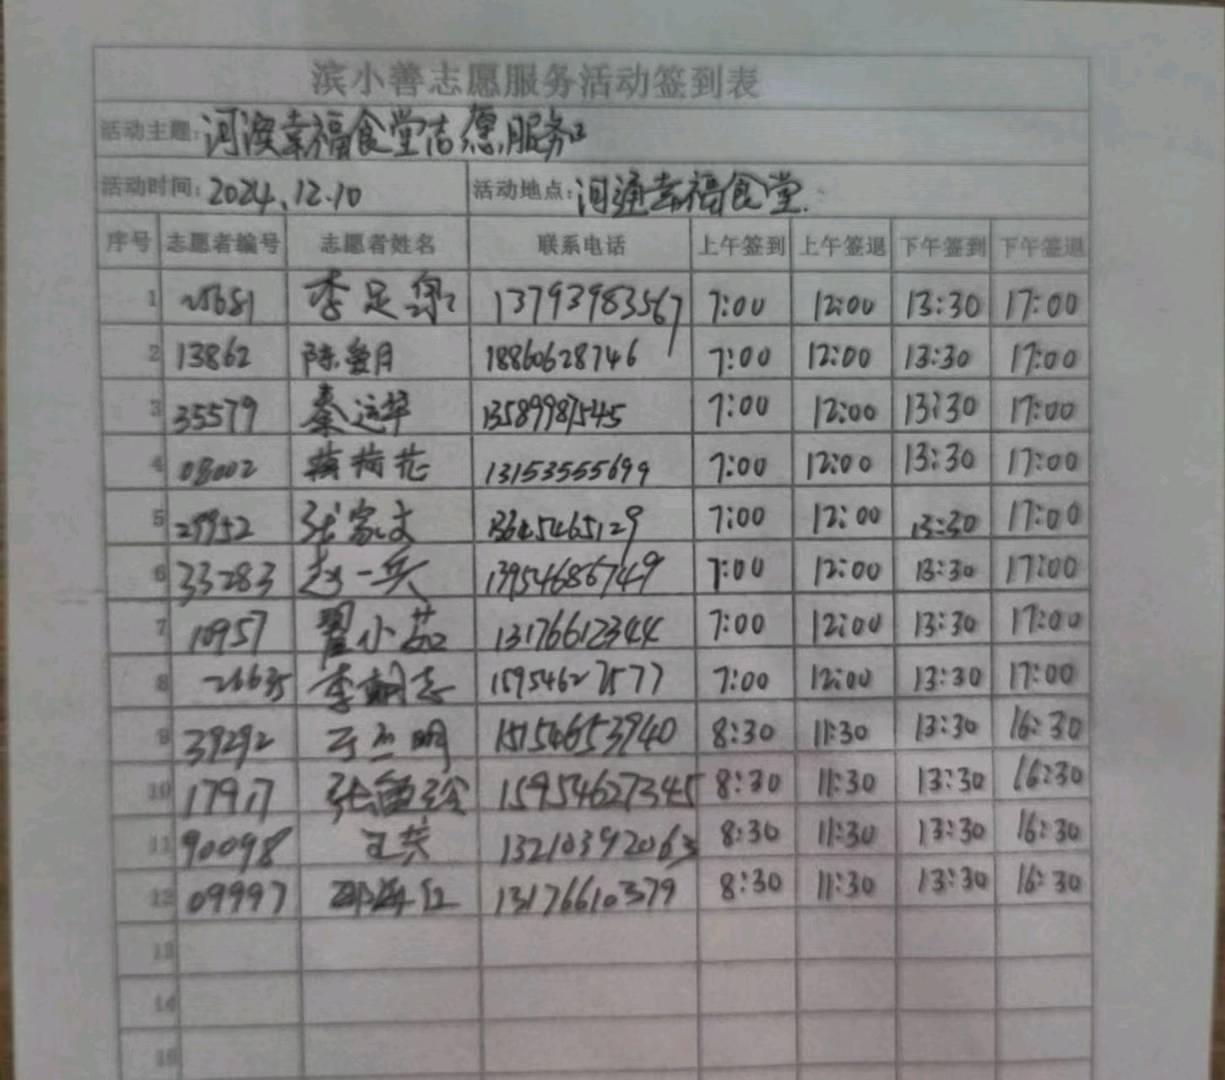 滨小善志愿服务活动签到表
活动主题: 河滨幸福食堂志愿服务
活动时间: 2024.12.10 活动地点: 河通幸福食堂.
序号 志愿者编号 志愿者姓名 联系电话 上午签到 上午签退 下午签到 下午签退
1 25681 李足 13793983567 7:00 12:00 13:30 17:00
2 13862 陈 月 18860628746 7:00 12:00 13:30 17:00
3 35579 秦运华 13589987545 7:00 12:00 13:30 17:00
4 08002 荷花 13153555699 7:00 12:00 13:30 17:00
5 29952 张家文 13645465129 7:00 12:00 13:30 17:00
6 33283 赵一兵 13954686749 7:00 12:00 13:30 17:00
7 10957 翟小茹 13176612344 7:00 12:00 13:30 17:00
8 26635 李 志 15954627577 7:00 12:00 13:30 17:00
9 39292 明 15154653940 8:30 11:30 13:30 16:30
10 17917 张 玲 15954627345 8:30 11:30 13:30 16:30
11 90098 王芹 13210392063 8:30 11:30 13:30 16:30
12 09997 邵海红 13176610379 8:30 11:30 13:30 16:30
13
14
15